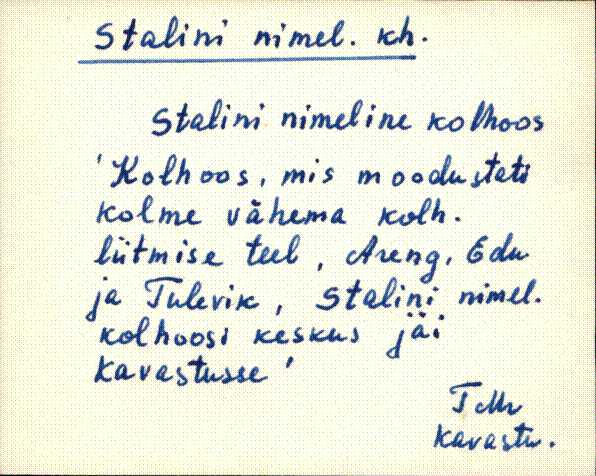 Stalini nimel. kh.
Stalini nimeline kolhoos
'Kolhoos, mis moodustati
kolme vähema kolh.
liitmise teel, Areng, Edu
ja Tulevik, Stalini nimel.
kolhoosi keskus jäi
Kavastusse'
TMr
Kavastu.